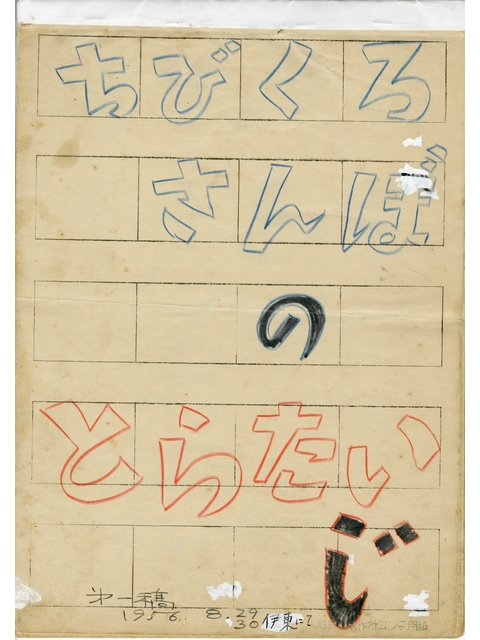 ちびくろ
さんぼ
の
とらたい
じ
第一稿
1956. 8. 29
30 伊東にて